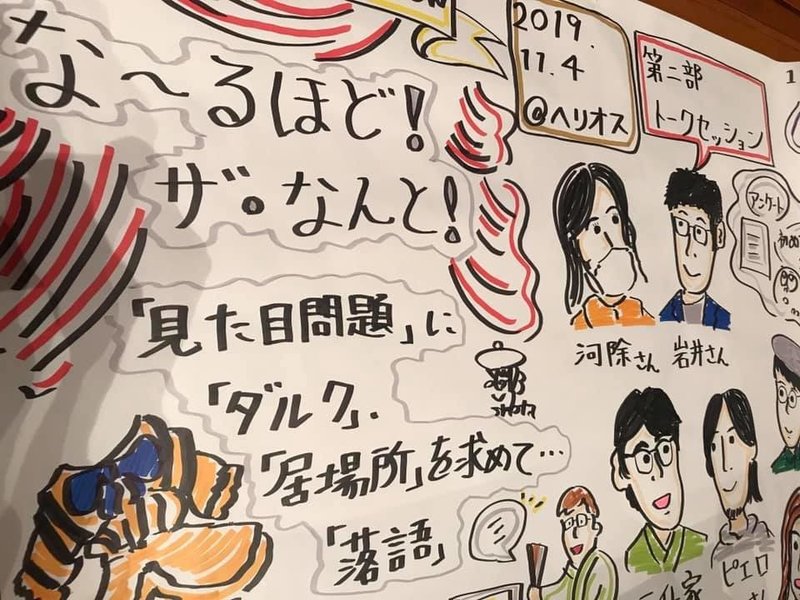 ON
な〜るほど!
ザ・なんと!
2019.
11.4
@ヘリオス
第二部
トークセッション
1
アンケート
「見た目問題」に
「ダルク」、
「居場所」を求めて…
「落語」
河除さん
岩井さん
ピエロ
さん